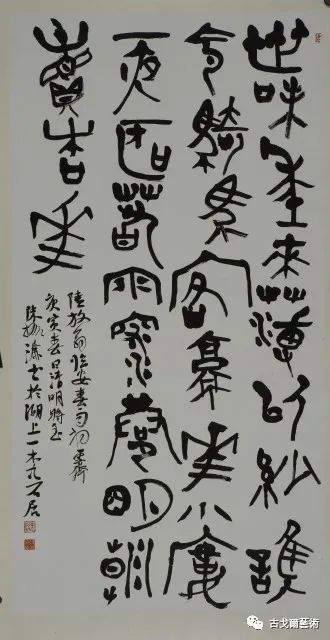 世味年來薄似紗誰
令騎馬客京華小樓
一夜聽春雨深巷明朝
賣杏花
陸放翁臨安春雨初霽
庚寅春日清明將至
陳振濂書於湖上一木石居
古戈爾藝術